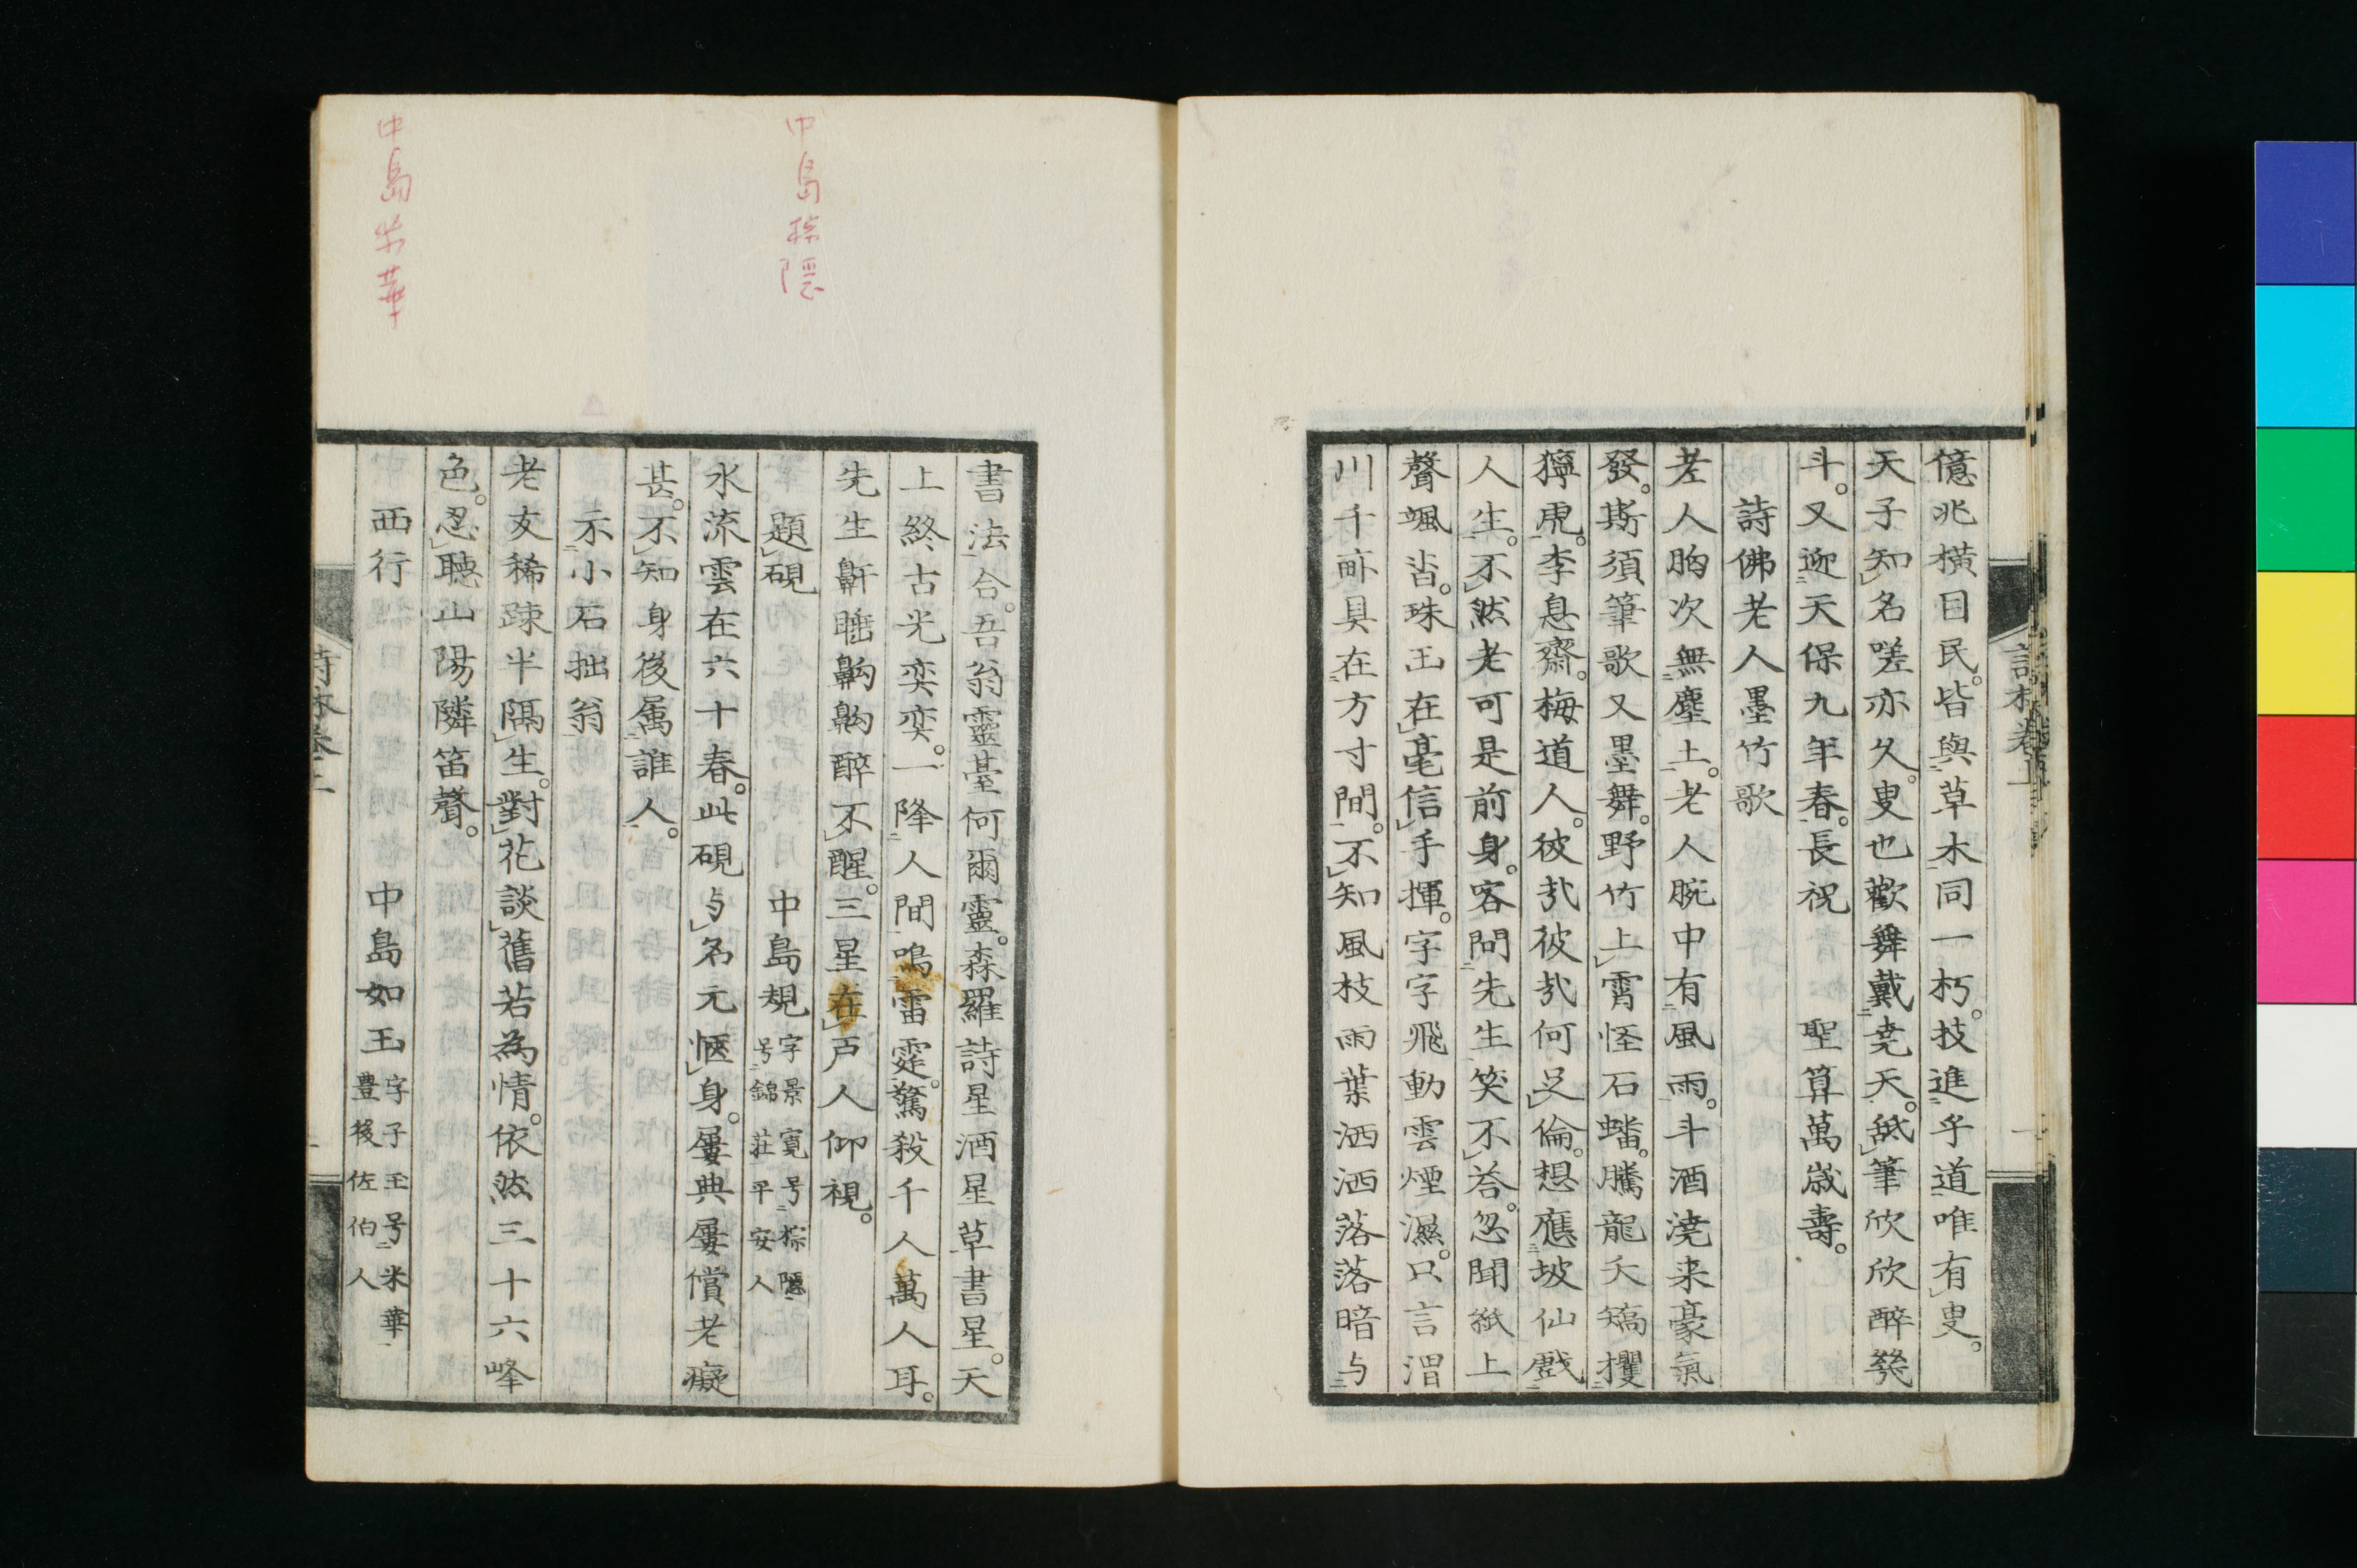 億兆橫目民。皆與草木同一朽。技進乎道唯有叟。
天子知名嗟亦久。叟也歡舞戴堯天。舐筆欣欣醉發
斗。又迎天保九年春。長祝　聖算萬歲壽。
詩佛老人墨竹歌
老人胸次無塵土。老人腕中有風雨。斗酒澆来豪氣
發。斯須筆歌又墨舞。野竹上霄怪石蟠。騰龍夭矯攫
獰虎。李息齋。梅道人。彼哉彼哉何足倫。想應坡仙戲
人生。不然老可是前身。客問先生笑不荅。忽聞紙上
聲颯沓。珠玉在毫信手揮。字字飛動雲煙濕。只言渭
川千畝具在方寸間。不知風枝雨葉洒洒落落暗与
書法合。吾翁靈臺何爾靈。森羅詩星酒星草書星。天
上終古光奕奕。一降人間鳴雷霆。驚殺千人萬人耳。
先生鼾睡齁齁醉不醒。三星在戶人仰視。
題硯　中島規 字景寬号棕隱 号錦莊平安人
水流雲在六十春。此硯与名元愜身。屢典屢償老癡
甚。不知身後属誰人。
示小石拙翁
老友稀疎半隔生。對花談舊若為情。依然三十六峰
色。忍聴山陽隣笛聲。
西行　中島如玉 字子玉号米華 豊後佐伯人
中島棕隠
中島米華